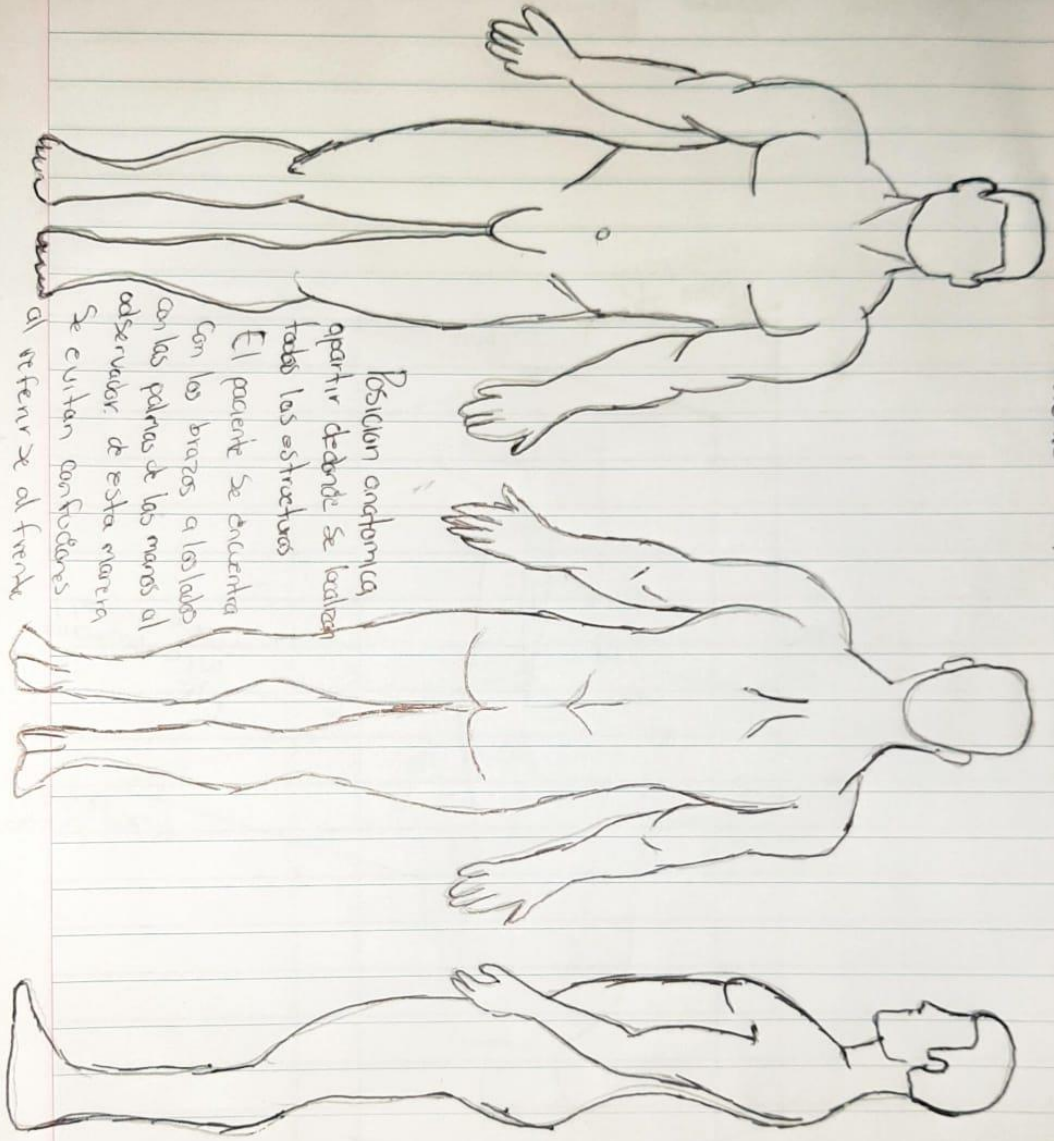 Posicion anatomica
apartir dedonde se localizan
todas las estructuras
El paciente se encuentra
con los brazos a los lados
con las palmas de las manos al
observador. de esta manera
se evitan confuciones
al referirse al frente